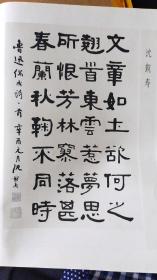 沈覲壽
文章如土欲何之
翹首東雲惹夢思
所恨芳林寥落甚
春蘭秋鞠不同時
魯迅偶成詩一首 辛酉元月沈